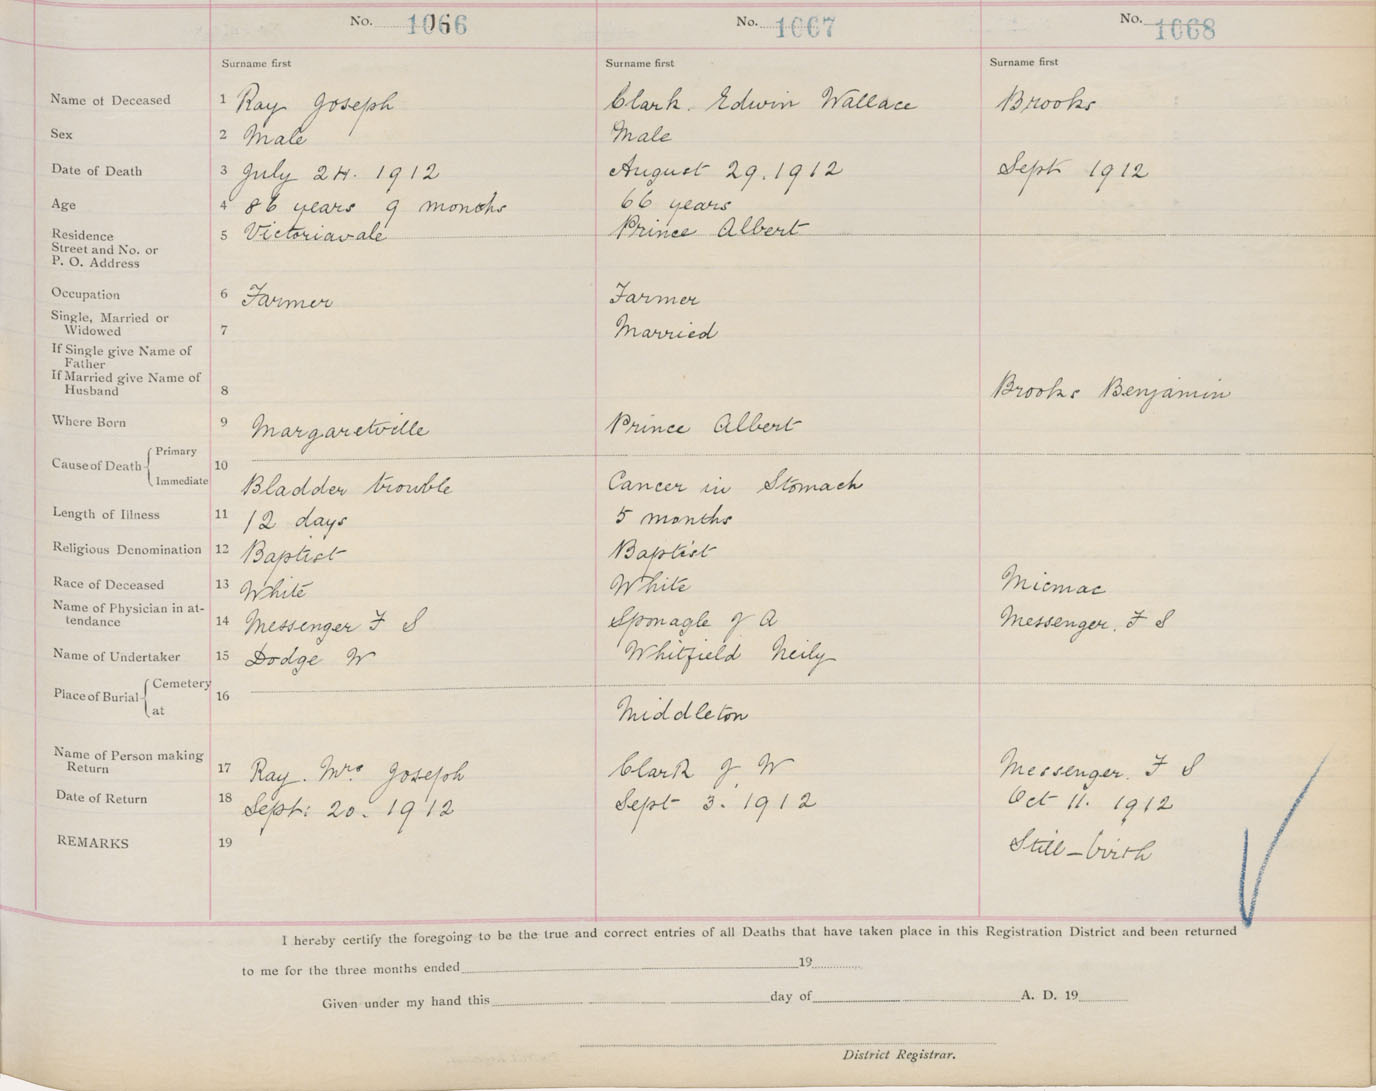 No. 1066 No. 1067 No. 1068
Surname first Surname first Surname first
Name of Deceased 1 Ray Joseph Clark. Edwin Wallace Brooks
Sex 2 Male Male
Date of Death 3 July 24. 1912 August 29. 1912 Sept 1912
Age 4 86 years 9 months 66 years
Residence 5 Victoriavale Prince Albert
Street and No. or
P. O. Address
Occupation 6 Farmer Farmer
Single, Married or
Widowed 7 Married
If Single give Name of
Father
If Married give Name of
Husband 8 Brooks Benjamin
Where Born 9 Margaretville Prince Albert
Cause of Death Primary 10
Immediate Bladder trouble Cancer in Stomach
Length of Illness 11 12 days 5 months
Religious Denomination 12 Baptist Baptist
Race of Deceased 13 White White Micmac
Name of Physician in at-
tendance 14 Messenger F S Sponagle J A Messenger. F S
Name of Undertaker 15 Dodge W Whitfield Neily
Place of Burial Cemetery 16
at Middleton
Name of Person making
Return 17 Ray. Mrs Joseph Clark J W Messenger. F S
Date of Return 18 Sept. 20. 1912 Sept 3. 1912 Oct 11. 1912
REMARKS 19 Still-birth
I hereby certify the foregoing to be the true and correct entries of all Deaths that have taken place in this Registration District and been returned
to me for the three months ended 19
Given under my hand this day of A. D. 19
District Registrar.